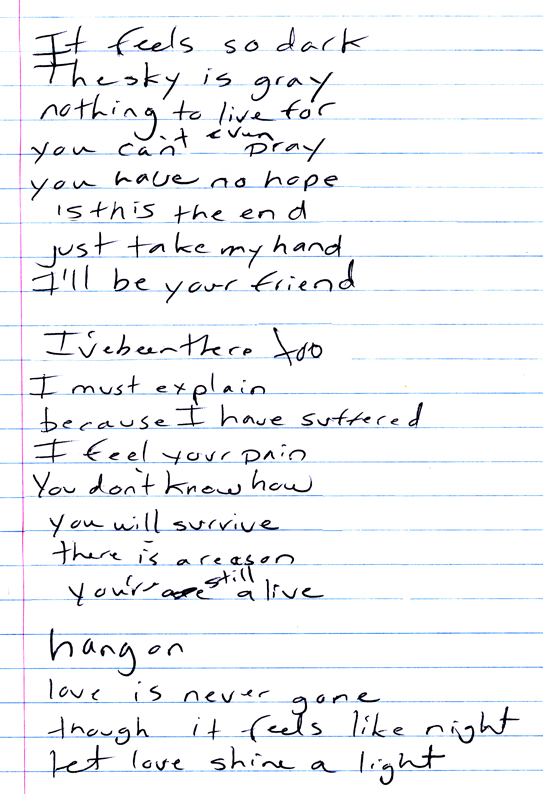 It feels so dark
The sky is gray
nothing to live for
you can't even pray
you have no hope
is this the end
just take my hand
I'll be your friend
I've been there too
I must explain
because I have suffered
I feel your pain
You don't know how
you will survive
there is a reason
you're still alive
hang on
love is never gone
though it feels like night
Let love shine a light